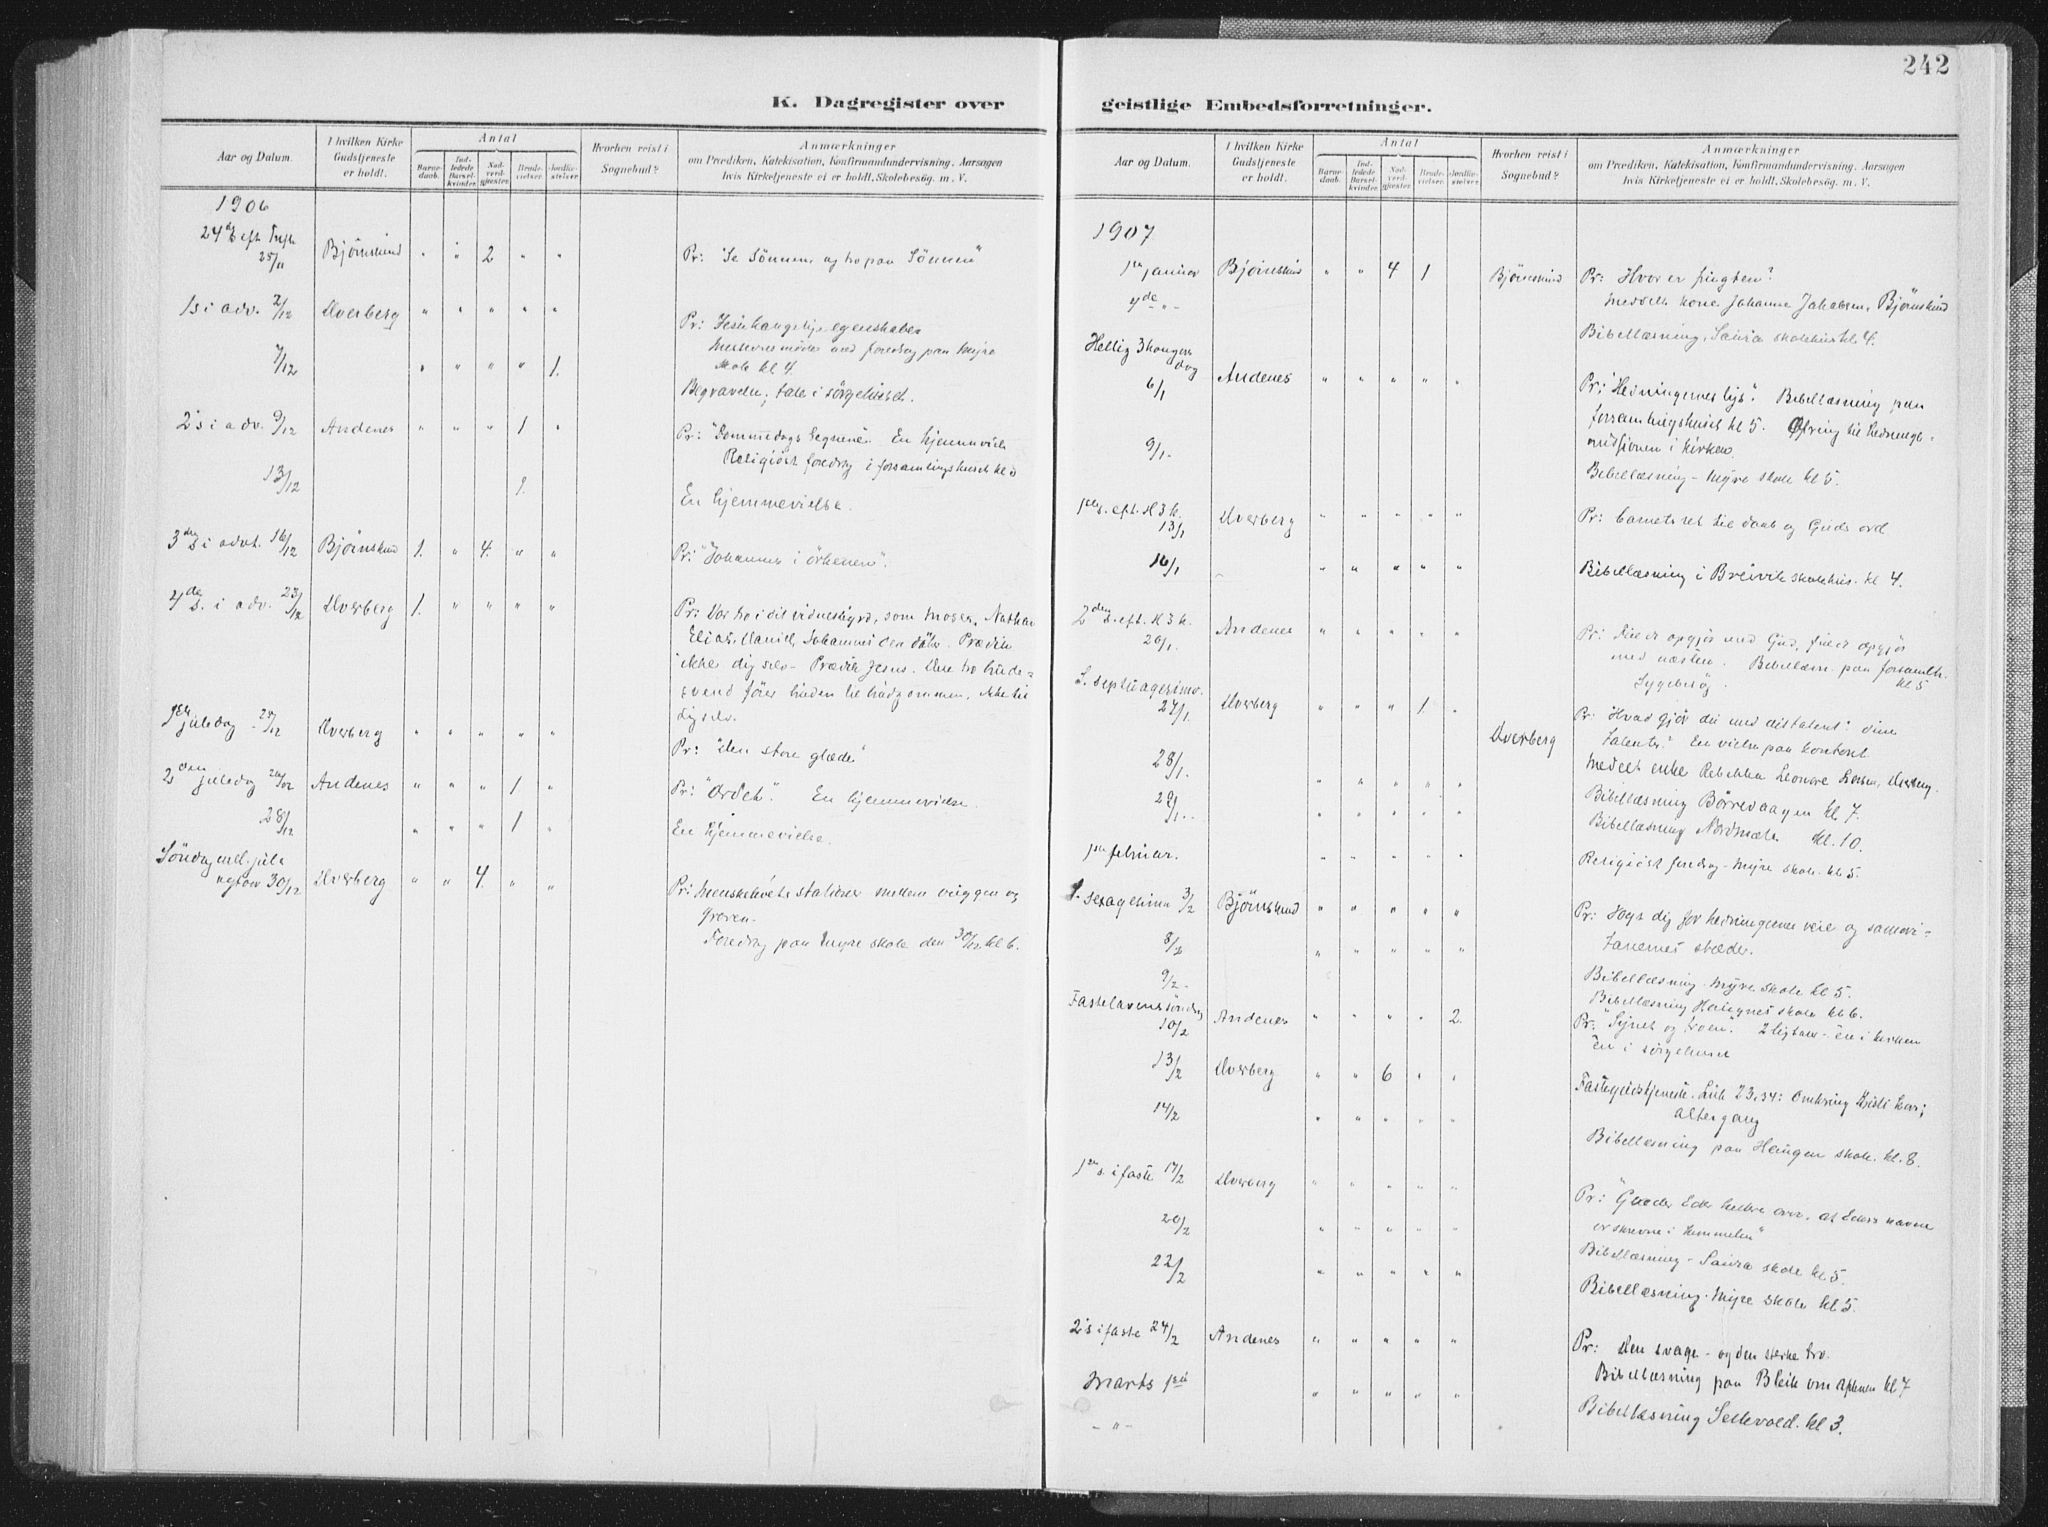 242
K. Dagregister over
geistlige Embedsforretninger.
Aar og Datum.
I hvilken Kirke Gudstjeneste er holdt.
Antal
Barnedaab.
Indledede Barselkvinder.
Nadverdgjester.
Brudevielser.
Jordfæstelser.
Hvorhen reist i Sognebud?
Anmærkninger
om Prædiken, Katekisation, Konfirmandundervisning. Aarsagen
hvis Kirketjeneste ei er holdt. Skolebesøg. m. V.
1906
24 d S eft Trefh
25/11 Bjørnskind " " 2 " " Pr: "Se Sønnen og tro paa Sønnen"
1 s i adv. 2/12 Dverberg " " " " " Pr: egenskaber
med foredrag paa Myre
skole kl 4.
7/12 " " " " 1. Begravelse; tale i sørgehuset.
2 s i adv. 9/12 Andenes " " " 1 " Pr: "Dommedags tegnene". En hjemmevielse
Religiøst foredrag i forsamlingshuset kl
13/12 1. En hjemmevielse.
3 die s i advt. 16/12 Bjørnskind 1. " 4. " " Pr: "Johannes i ørkenen".
4 de s. i adv. 23/12 Dverberg 1. " " " " Pr: Vær tro i dit vidnesbyrd, som Moses, Nathan
Elias, Daniel, Johannes den døbr. Prædik
ikke dig selv - Prædik Jesus. Den tro brude-
svend fører bruden til brudgommen, ikke til
dig selv.
1ste juledag 25/12 Dverberg " " " " " Pr: "Den store glæde"
2den juledag 26/12 Andenes " " " 1 " Pr: "Ordet". En hjemmevielse.
28/12 " " " 1 " En hjemmevielse.
Søndag mell. jul &
nytaar 30/12 Dverberg " " 4. " " Pr: Menneskelivets stationer mellem vuggen og
graven.
Foredrag paa Myre skole den 30/12 kl 6.
Aar og Datum.
I hvilken Kirke Gudstjeneste er holdt.
Antal
Barnedaab.
Indledede Barselkvinder.
Nadverdgjester.
Brudevielser.
Jordfæstelser.
Hvorhen reist i Sognebud?
Anmærkninger
om Prædiken, Katekisation, Konfirmandundervisning. Aarsagen
hvis Kirketjeneste ei er holdt. Skolebesøg. m. V.
1907
1ste januar Bjørnskind " " 4 1. Bjørnskind Pr: Hvor er frugten?
Meddelt kone Johanna Jakobsen, Bjørnskind
4de - " - Bibellæsning, Saura skolehus kl 4.
Hellig 3 kongers
dag
6/1 Andenes " " " " " Pr: "Hedningernes lys". Bibellæsning paa
forsamlingshuset kl 5. Ofring til hedninge-
missionen i kirken.
9/1. Bibellæsning - Myre skole kl 5.
1ste s. eft. H 3 k.
13/1 Dverberg " " " " " Pr: barnets ret til daab og Guds ord
16/1 " " " " " Bibellæsning i Breivik skolehus. kl 4.
2den s. eft. H 3 k.
20/1. Andenes " " " " " Pr: Fuldt opgjør med Gud, fuldt opgjør
med næsten. Bibellæsn. paa forsamlh.
kl 5
Sygebesøg.
S. septuagesima.
27/1. Dverberg " " " 1. " Pr: Hvad gjør du med dit talent? dine
talenter? En vielse paa kontoret
Dverberg Meddelt enke Rebekka Leonore Larsen, Dverberg.
28/1. " " " " " Bibellæsning Børrevaagen kl 7.
29/1. " " " " " Bibellæsning Nordmela kl. 10.
1ste februar. " " " " " Religiøst foredrag - Myre skole. kl 5.
S. sexagesima 3/2 Bjørnskind " " " " " Pr: Vogt dig for hedningernes veie og samari-
tanernes stæder.
8/2 " " " " " Bibellæsning. Myre skole kl 5.
9/2 - Bibellæsning skole kl 6.
Fastelavens søndag
10/2 Andenes " " " " 2. Pr: "Synet og troen". 2 ligtaler - en i kirken
en i sørgehuset
13/2 Dverberg " " 6 " " Fastegudstjeneste. Luk 23,34: Omkring Kristi kors;
altergang
14/2 " " " " " Bibellæsning paa Haugen skole. kl. 8.
1ste s. i faste 17/2 Dverberg " " " " " Pr: "Glæder Eder hellere over, at Eders navne
er skrevne i himmelen"
20/2 " " " " " Bibellæsning - Saura skole kl 5.
22/2 " " " " " Bibellæsning. Myre skole kl 5.
2 s i faste 24/2 Andenes " " " " " Pr: Den svage - og den sterke tro.
Bibellæsning paa Bleik om aftenen kl 7
Marts 1ste " " " " " Bibellæsning Sellevold. kl 3.
- " -